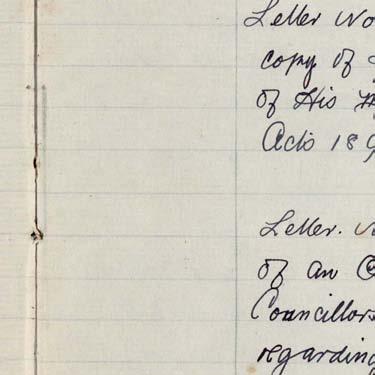 Letter No
copy of
of His
Acts 189
Letter.
of an
Councillors
regarding